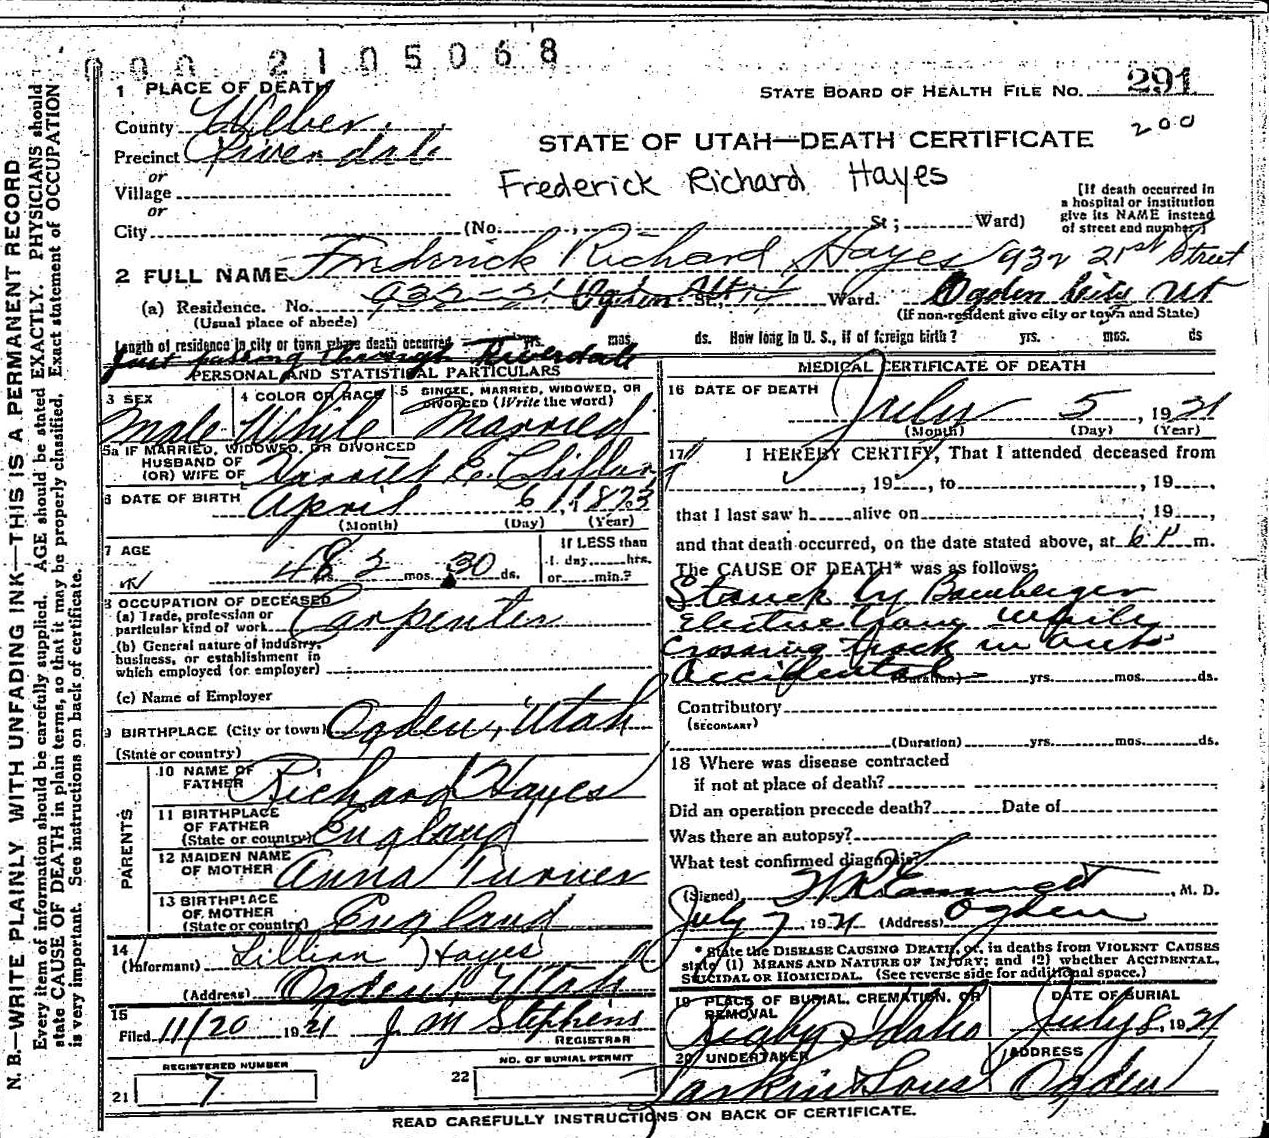 000 2105068
1 PLACE OF DEATH
STATE BOARD OF HEALTH FILE NO. 291
200
County Weber
STATE OF UTAH—DEATH CERTIFICATE
Precinct Riverdale
or
Village
Frederick Richard Hayes
or
[If death occurred in a hospital or institution give its NAME instead of street and number.]
City (No. , St; Ward)
2 FULL NAME Frederick Richard Hayes 932 21st Street
(a) Residence. No. 932-21 Ogden St., Ward. Ogden City Ut
(Usual place of abode) (If non-resident give city or town and State)
Length of residence in city or town where death occurred yrs. mos. ds. How long in U. S., if of foreign birth? yrs. mos. ds
Just passing through Riverdale
PERSONAL AND STATISTICAL PARTICULARS
3 SEX
Male
4 COLOR OR RACE
White
5 SINGLE, MARRIED, WIDOWED, OR DIVORCED (Write the word)
Married
5a IF MARRIED, WIDOWED, OR DIVORCED
HUSBAND OF
(OR) WIFE OF Harriet E. Clifton
6 DATE OF BIRTH April 6 1873
(Month) (Day) (Year)
7 AGE
48 yrs. 2 mos. 30 ds.
If LESS than
1 day, hrs.
or min.?
8 OCCUPATION OF DECEASED
(a) Trade, profession or
particular kind of work Carpenter
(b) General nature of industry,
business, or establishment in
which employed (or employer)
(c) Name of Employer
9 BIRTHPLACE (City or town) Ogden, Utah
(State or country)
PARENTS
10 NAME OF
FATHER Richard Hayes
11 BIRTHPLACE
OF FATHER
(State or country) England
12 MAIDEN NAME
OF MOTHER Anna Turner
13 BIRTHPLACE
OF MOTHER
(State or country) England
14
(Informant) Lillian Hayes
(Address) Ogden, Utah
15
Filed 11/20 1921 J. M Stephens
REGISTRAR
REGISTERED NUMBER
21 7
NO. OF BURIAL PERMIT
22
MEDICAL CERTIFICATE OF DEATH
16 DATE OF DEATH
July 5, 1921
(Month) (Day) (Year)
17 I HEREBY CERTIFY, That I attended deceased from
, 19 , to , 19 ,
that I last saw h alive on , 19 ,
and that death occurred, on the date stated above, at 6 P m.
The CAUSE OF DEATH* was as follows:
Struck by Bamberger
Electric while
crossing track in auto
Accidental
(Duration) yrs. mos. ds.
Contributory
(SECONDARY)
(Duration) yrs. mos. ds.
18 Where was disease contracted
if not at place of death?
Did an operation precede death? Date of
Was there an autopsy?
What test confirmed diagnosis?
(Signed) , M. D.
July 7, 1921 (Address) Ogden
* State the DISEASE CAUSING DEATH, or, in deaths from VIOLENT CAUSES
state (1) MEANS AND NATURE OF INJURY; and (2) whether ACCIDENTAL,
SUICIDAL OR HOMICIDAL. (See reverse side for additional space.)
19 PLACE OF BURIAL, CREMATION, OR
REMOVAL
Rigby, Idaho
DATE OF BURIAL
July 8, 1921
20 UNDERTAKER
Larkin & Sons
ADDRESS
Ogden
READ CAREFULLY INSTRUCTIONS ON BACK OF CERTIFICATE.
N. B.—WRITE PLAINLY WITH UNFADING INK—THIS IS A PERMANENT RECORD
Every item of information should be carefully supplied. AGE should be stated EXACTLY. PHYSICIANS should
state CAUSE OF DEATH in plain terms, so that it may be properly classified. Exact statement of OCCUPATION
is very important. See instructions on back of certificate.